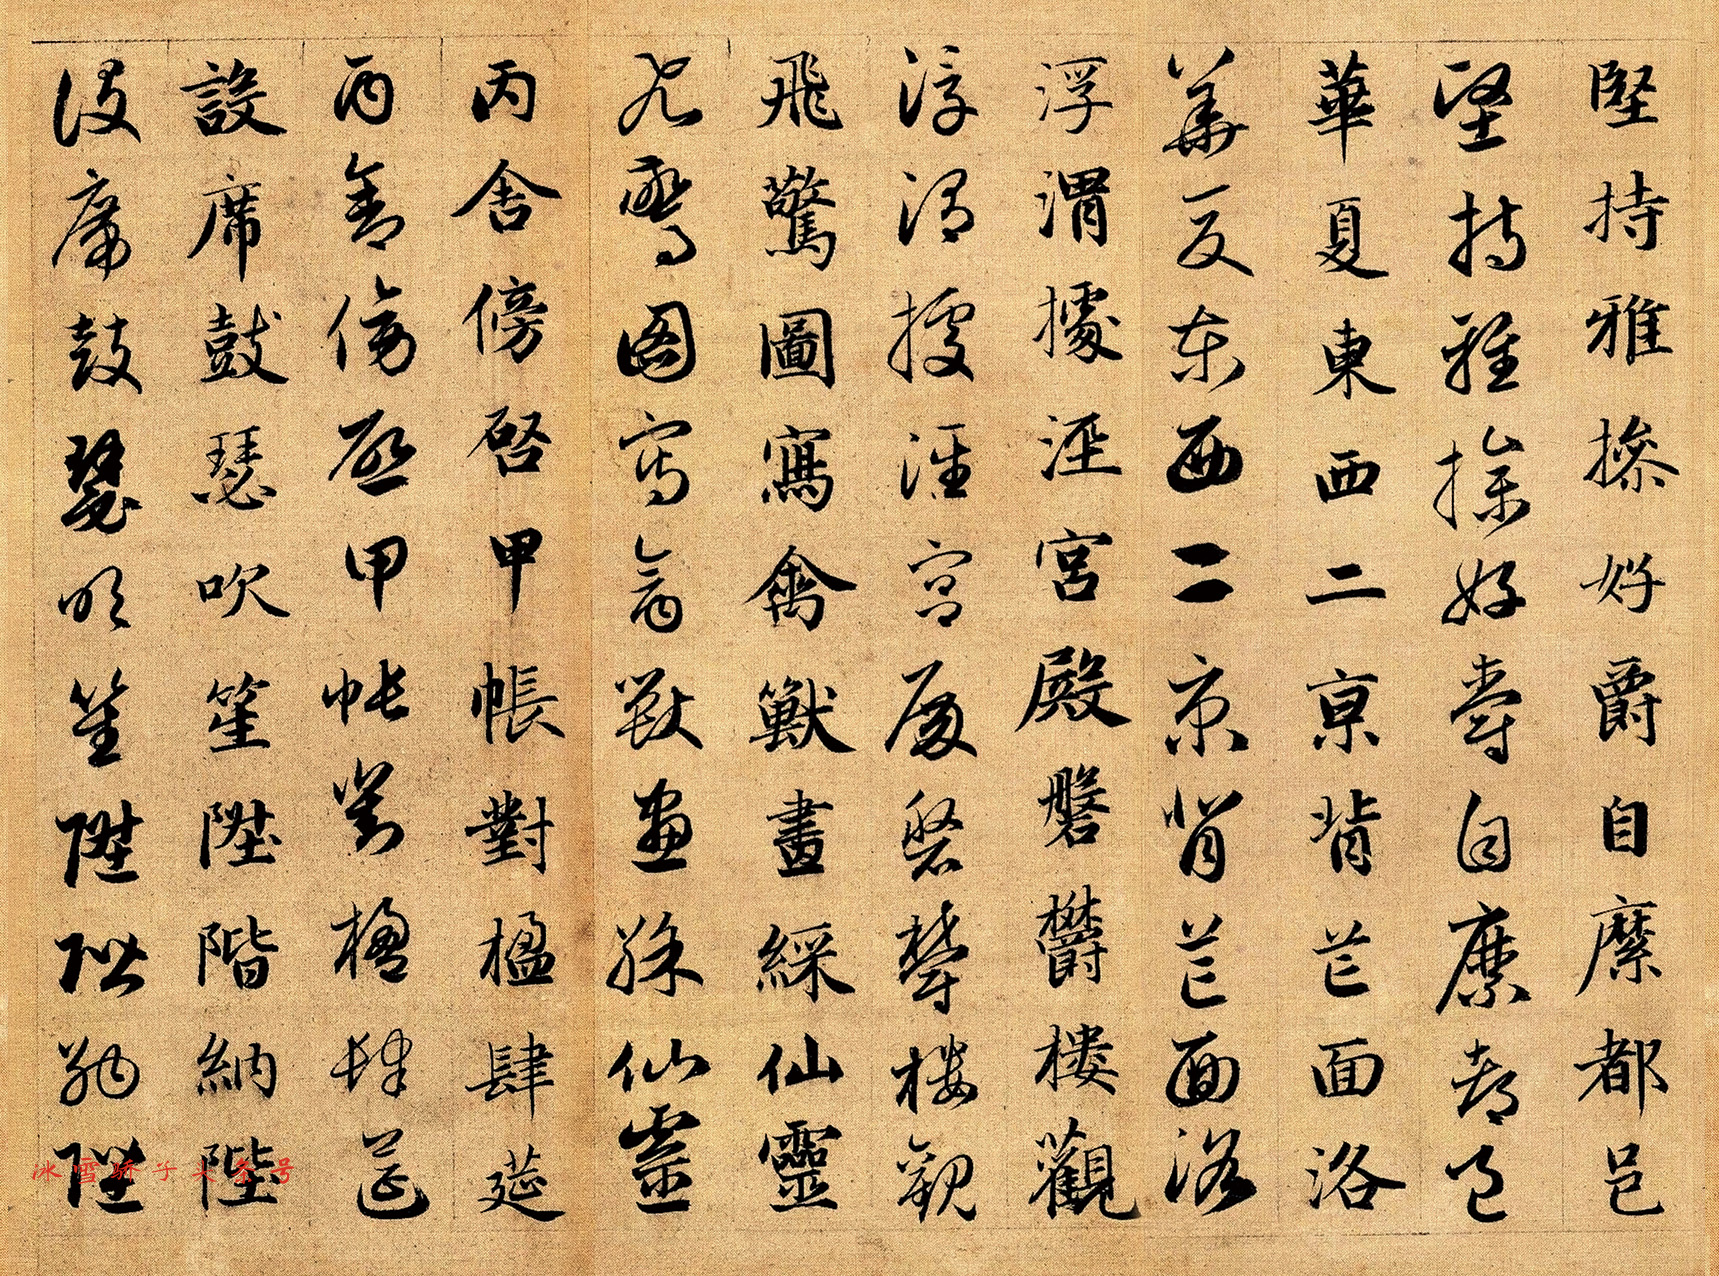 堅持雅操好爵自縻都邑
堅持雅操好爵自縻都邑
華夏東西二京背芒面洛
華夏東西二京背芒面洛
浮渭據涇宮殿磐鬱樓觀
浮渭據涇宮殿磐鬱樓觀
飛驚圖寫禽獸畫綵仙靈
飛驚圖寫禽獸畫綵仙靈
丙舍傍啓甲帳對楹肆筵
丙舍傍啓甲帳對楹肆筵
設席鼓瑟吹笙陞階納陛
設席鼓瑟吹笙陞階納陛
冰雪骄子头条号